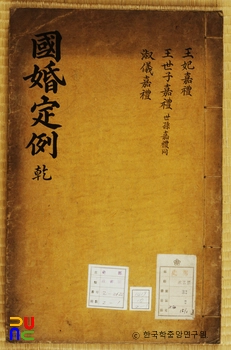 國婚定例 乾
王妃嘉禮
王世子嘉禮 世孫嘉禮同
淑儀嘉禮
ⓒ 한국학중앙연구원